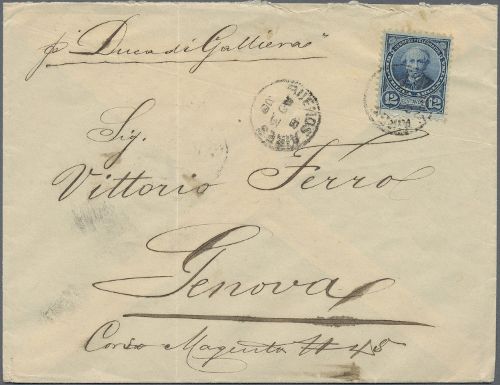 p. "Duca di Galliera"
12 12
BUENOS AIRES
Sig.
Vittorio Ferro
Genova
Corso Magenta # 48